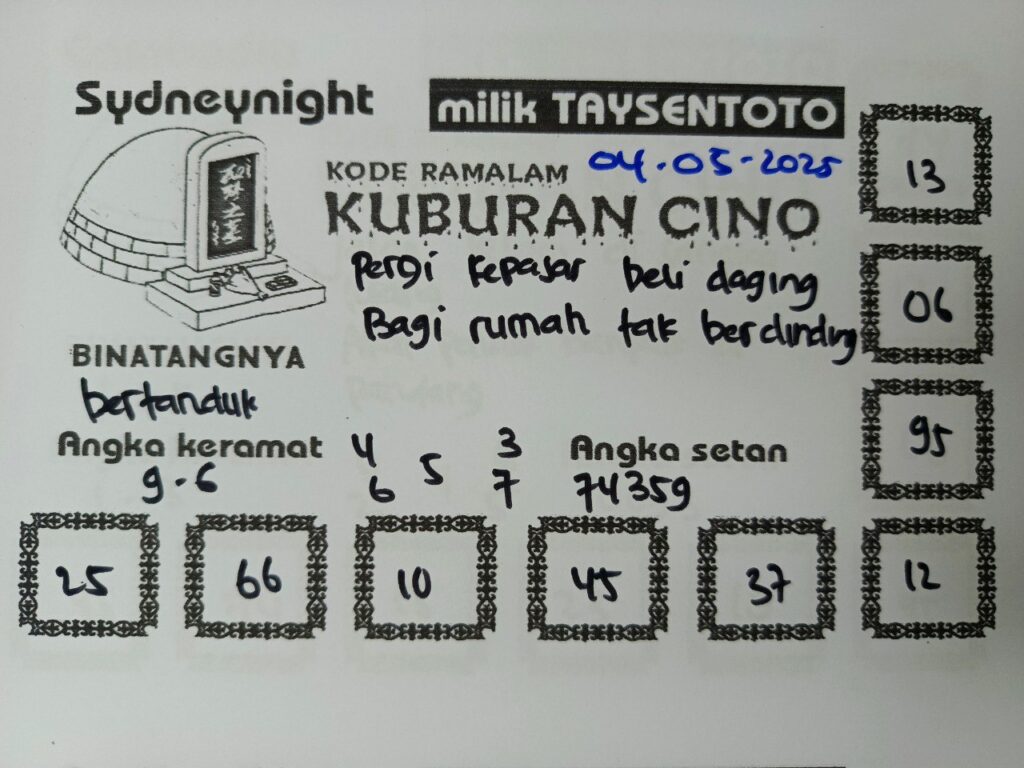 Sydneynight
milik TAYSENTOTO
KODE RAMALAM 04.05-2025
KUBURAN CINO
Pergi kepasar beli daging
Bagi rumah tak berdinding
BINATANGNYA
bertanduk
Angka keramat
9.6
4 3
5
6 7
Angka setan
74359
13
06
95
25 66 10 45 37 12